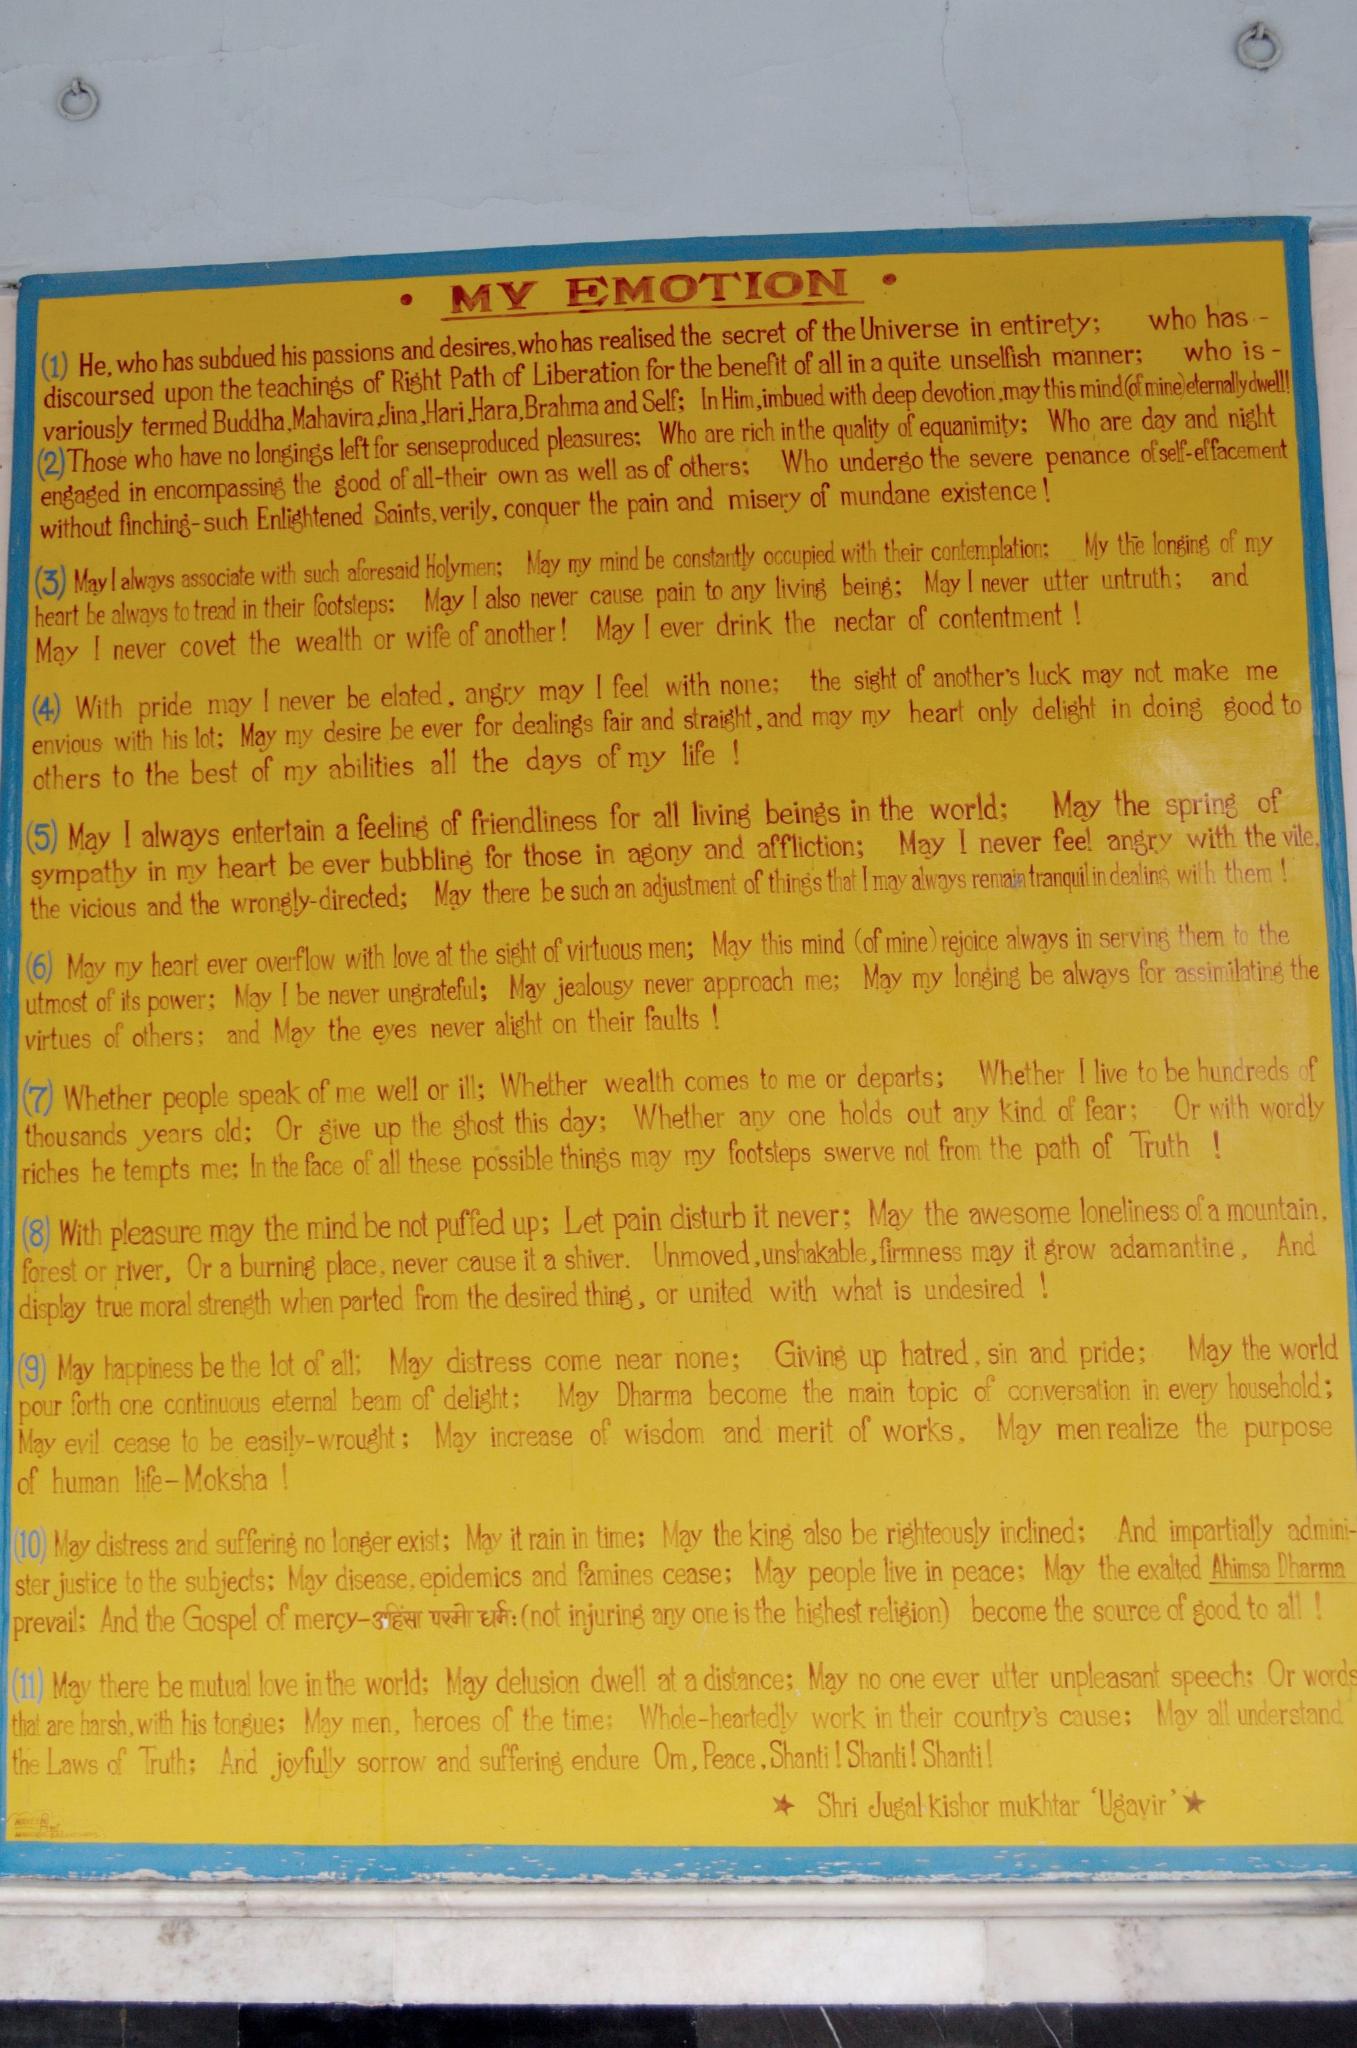 • MY EMOTION •
(1) He, who has subdued his passions and desires, who has realised the secret of the Universe in entirety; who has -
discoursed upon the teachings of Right Path of Liberation for the benefit of all in a quite unselfish manner; who is -
variously termed Buddha, Mahavira, Jina, Hari, Hara, Brahma and Self; In Him, imbued with deep devotion, may this mind (of mine) eternally dwell!
(2) Those who have no longings left for senseproduced pleasures; Who are rich in the quality of equanimity; Who are day and night
engaged in encompassing the good of all-their own as well as of others; Who undergo the severe penance of self-effacement
without finching-such Enlightened Saints, verily, conquer the pain and misery of mundane existence!
(3) May I always associate with such aforesaid Holymen; May my mind be constantly occupied with their contemplation; My the longing of my
heart be always to tread in their footsteps; May I also never cause pain to any living being; May I never utter untruth; and
May I never covet the wealth or wife of another! May I ever drink the nectar of contentment!
(4) With pride may I never be elated, angry may I feel with none; the sight of another's luck may not make me
envious with his lot; May my desire be ever for dealings fair and straight, and may my heart only delight in doing good to
others to the best of my abilities all the days of my life!
(5) May I always entertain a feeling of friendliness for all living beings in the world; May the spring of
sympathy in my heart be ever bubbling for those in agony and affliction; May I never feel angry with the vile,
the vicious and the wrongly-directed; May there be such an adjustment of things that I may always remain tranquil in dealing with them!
(6) May my heart ever overflow with love at the sight of virtuous men; May this mind (of mine) rejoice always in serving them to the
utmost of its power; May I be never ungrateful; May jealousy never approach me; May my longing be always for assimilating the
virtues of others; and May the eyes never alight on their faults!
(7) Whether people speak of me well or ill; Whether wealth comes to me or departs; Whether I live to be hundreds of
thousands years old; Or give up the ghost this day; Whether any one holds out any kind of fear; Or with wordly
riches he tempts me; In the face of all these possible things may my footsteps swerve not from the path of Truth!
(8) With pleasure may the mind be not puffed up; Let pain disturb it never; May the awesome loneliness of a mountain,
forest or river, Or a burning place, never cause it a shiver. Unmoved, unshakable, firmness may it grow adamantine, And
display true moral strength when parted from the desired thing, or united with what is undesired!
(9) May happiness be the lot of all; May distress come near none; Giving up hatred, sin and pride; May the world
pour forth one continuous eternal beam of delight; May Dharma become the main topic of conversation in every household;
May evil cease to be easily-wrought; May increase of wisdom and merit of works, May men realize the purpose
of human life-Moksha!
(10) May distress and suffering no longer exist; May it rain in time; May the king also be righteously inclined; And impartially admini-
ster justice to the subjects; May disease, epidemics and famines cease; May people live in peace; May the exalted Ahimsa Dharma
prevail; And the Gospel of mercy-अहिंसा परमो धर्म: (not injuring any one is the highest religion) become the source of good to all!
(11) May there be mutual love in the world; May delusion dwell at a distance; May no one ever utter unpleasant speech; Or words
that are harsh, with his tongue; May men, heroes of the time; Whole-heartedly work in their country's cause; May all understand
the Laws of Truth; And joyfully sorrow and suffering endure Om, Peace, Shanti! Shanti! Shanti!
★ Shri Jugal kishor mukhtar 'Ugavir' ★